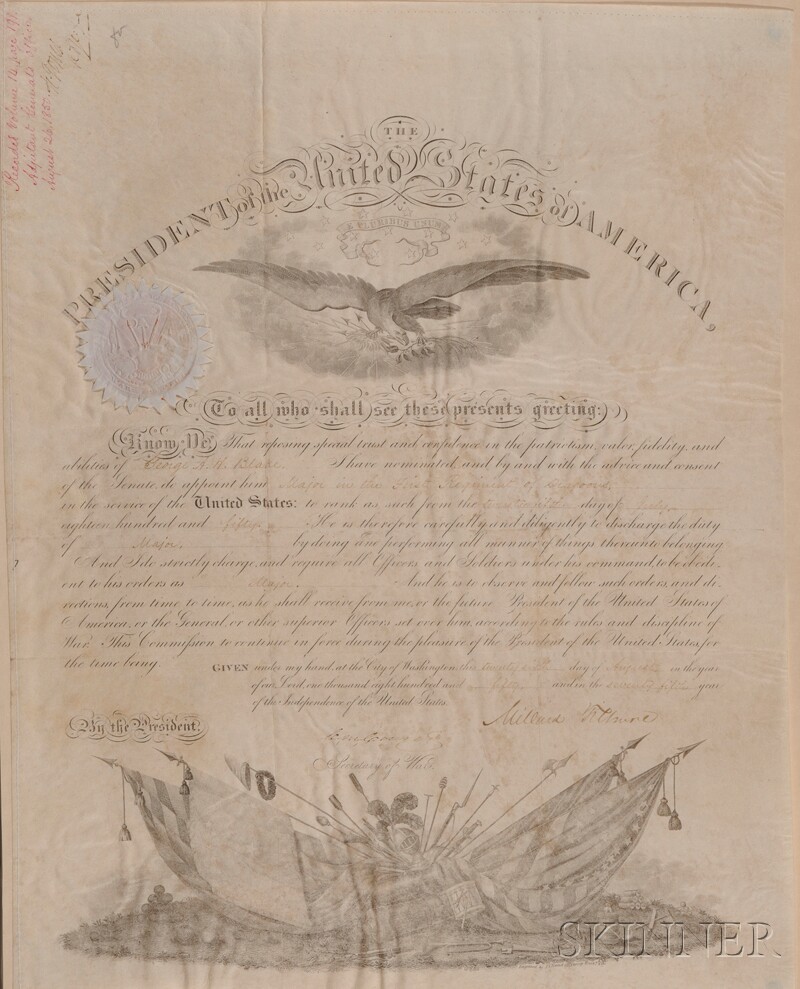 Recorded Volume
Adjutant General's Office
August
THE
PRESIDENT of the United States of AMERICA,
E PLURIBUS UNUM
To all who shall see these presents greeting:
Know Ye, That reposing special trust and confidence in the patriotism, valor, fidelity, and
abilities of George A. H. Blake I have nominated, and by and with the advice and consent
of the Senate, do appoint him Major in the First Regiment of Dragoons
in the service of the United States: to rank as such from the day of July
eighteen hundred and fifty He is therefore carefully and diligently to discharge the duty
of Major by doing and performing all manner of things thereunto belonging
And I do strictly charge, and require all Officers and Soldiers under his command, to be obedi-
ent to his orders as Major. And he is to observe and follow such orders, and di-
rections, from time to time, as he shall receive from me, or the future President of the United States of
America, or the General, or other superior Officers set over him, according to the rules and discipline of
War. This Commission to continue in force during the pleasure of the President of the United States, for
the time being.
GIVEN under my hand, at the City of Washington, this twenty day of August in the year
of our Lord, one thousand eight hundred and fifty and in the seventy fifth year
of the Independence of the United States.
By the President.
Millard Fillmore
Secretary of War.
SKINNER